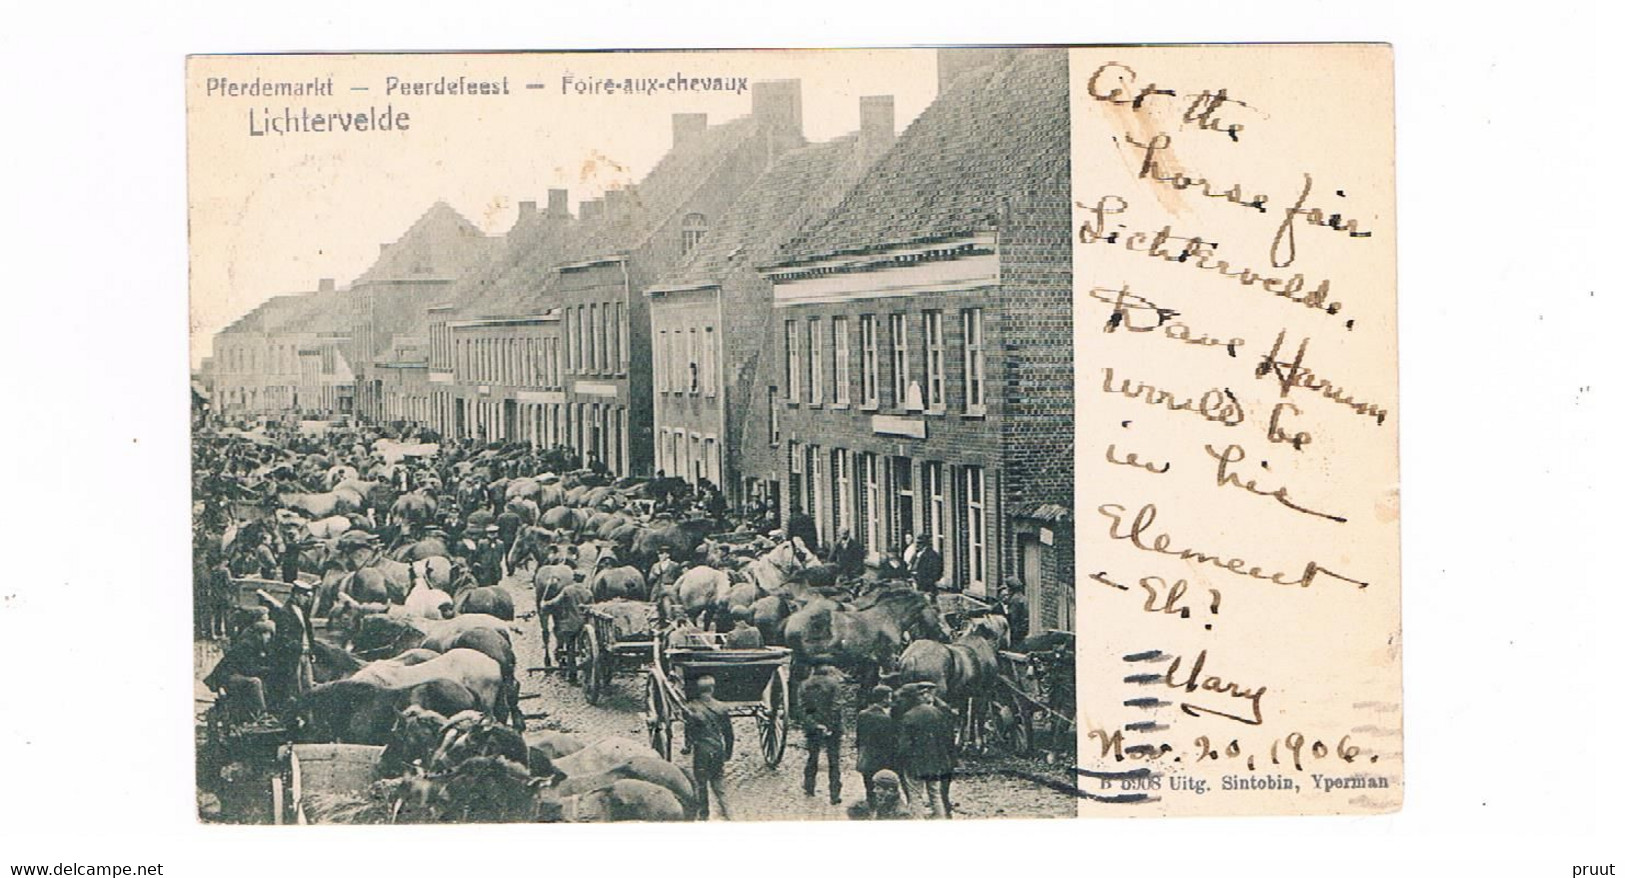 Pferdemarkt — Peerdefeest — Foire-aux-chevaux
Lichtervelde
At the
horse fair
Lichtervelde.
Dave Harum
would be
in his
Element
- Eh?
Mary
Nov. 20, 1906.
B 5908 Uitg. Sintobin, Yperman
delcampe.net
pruut